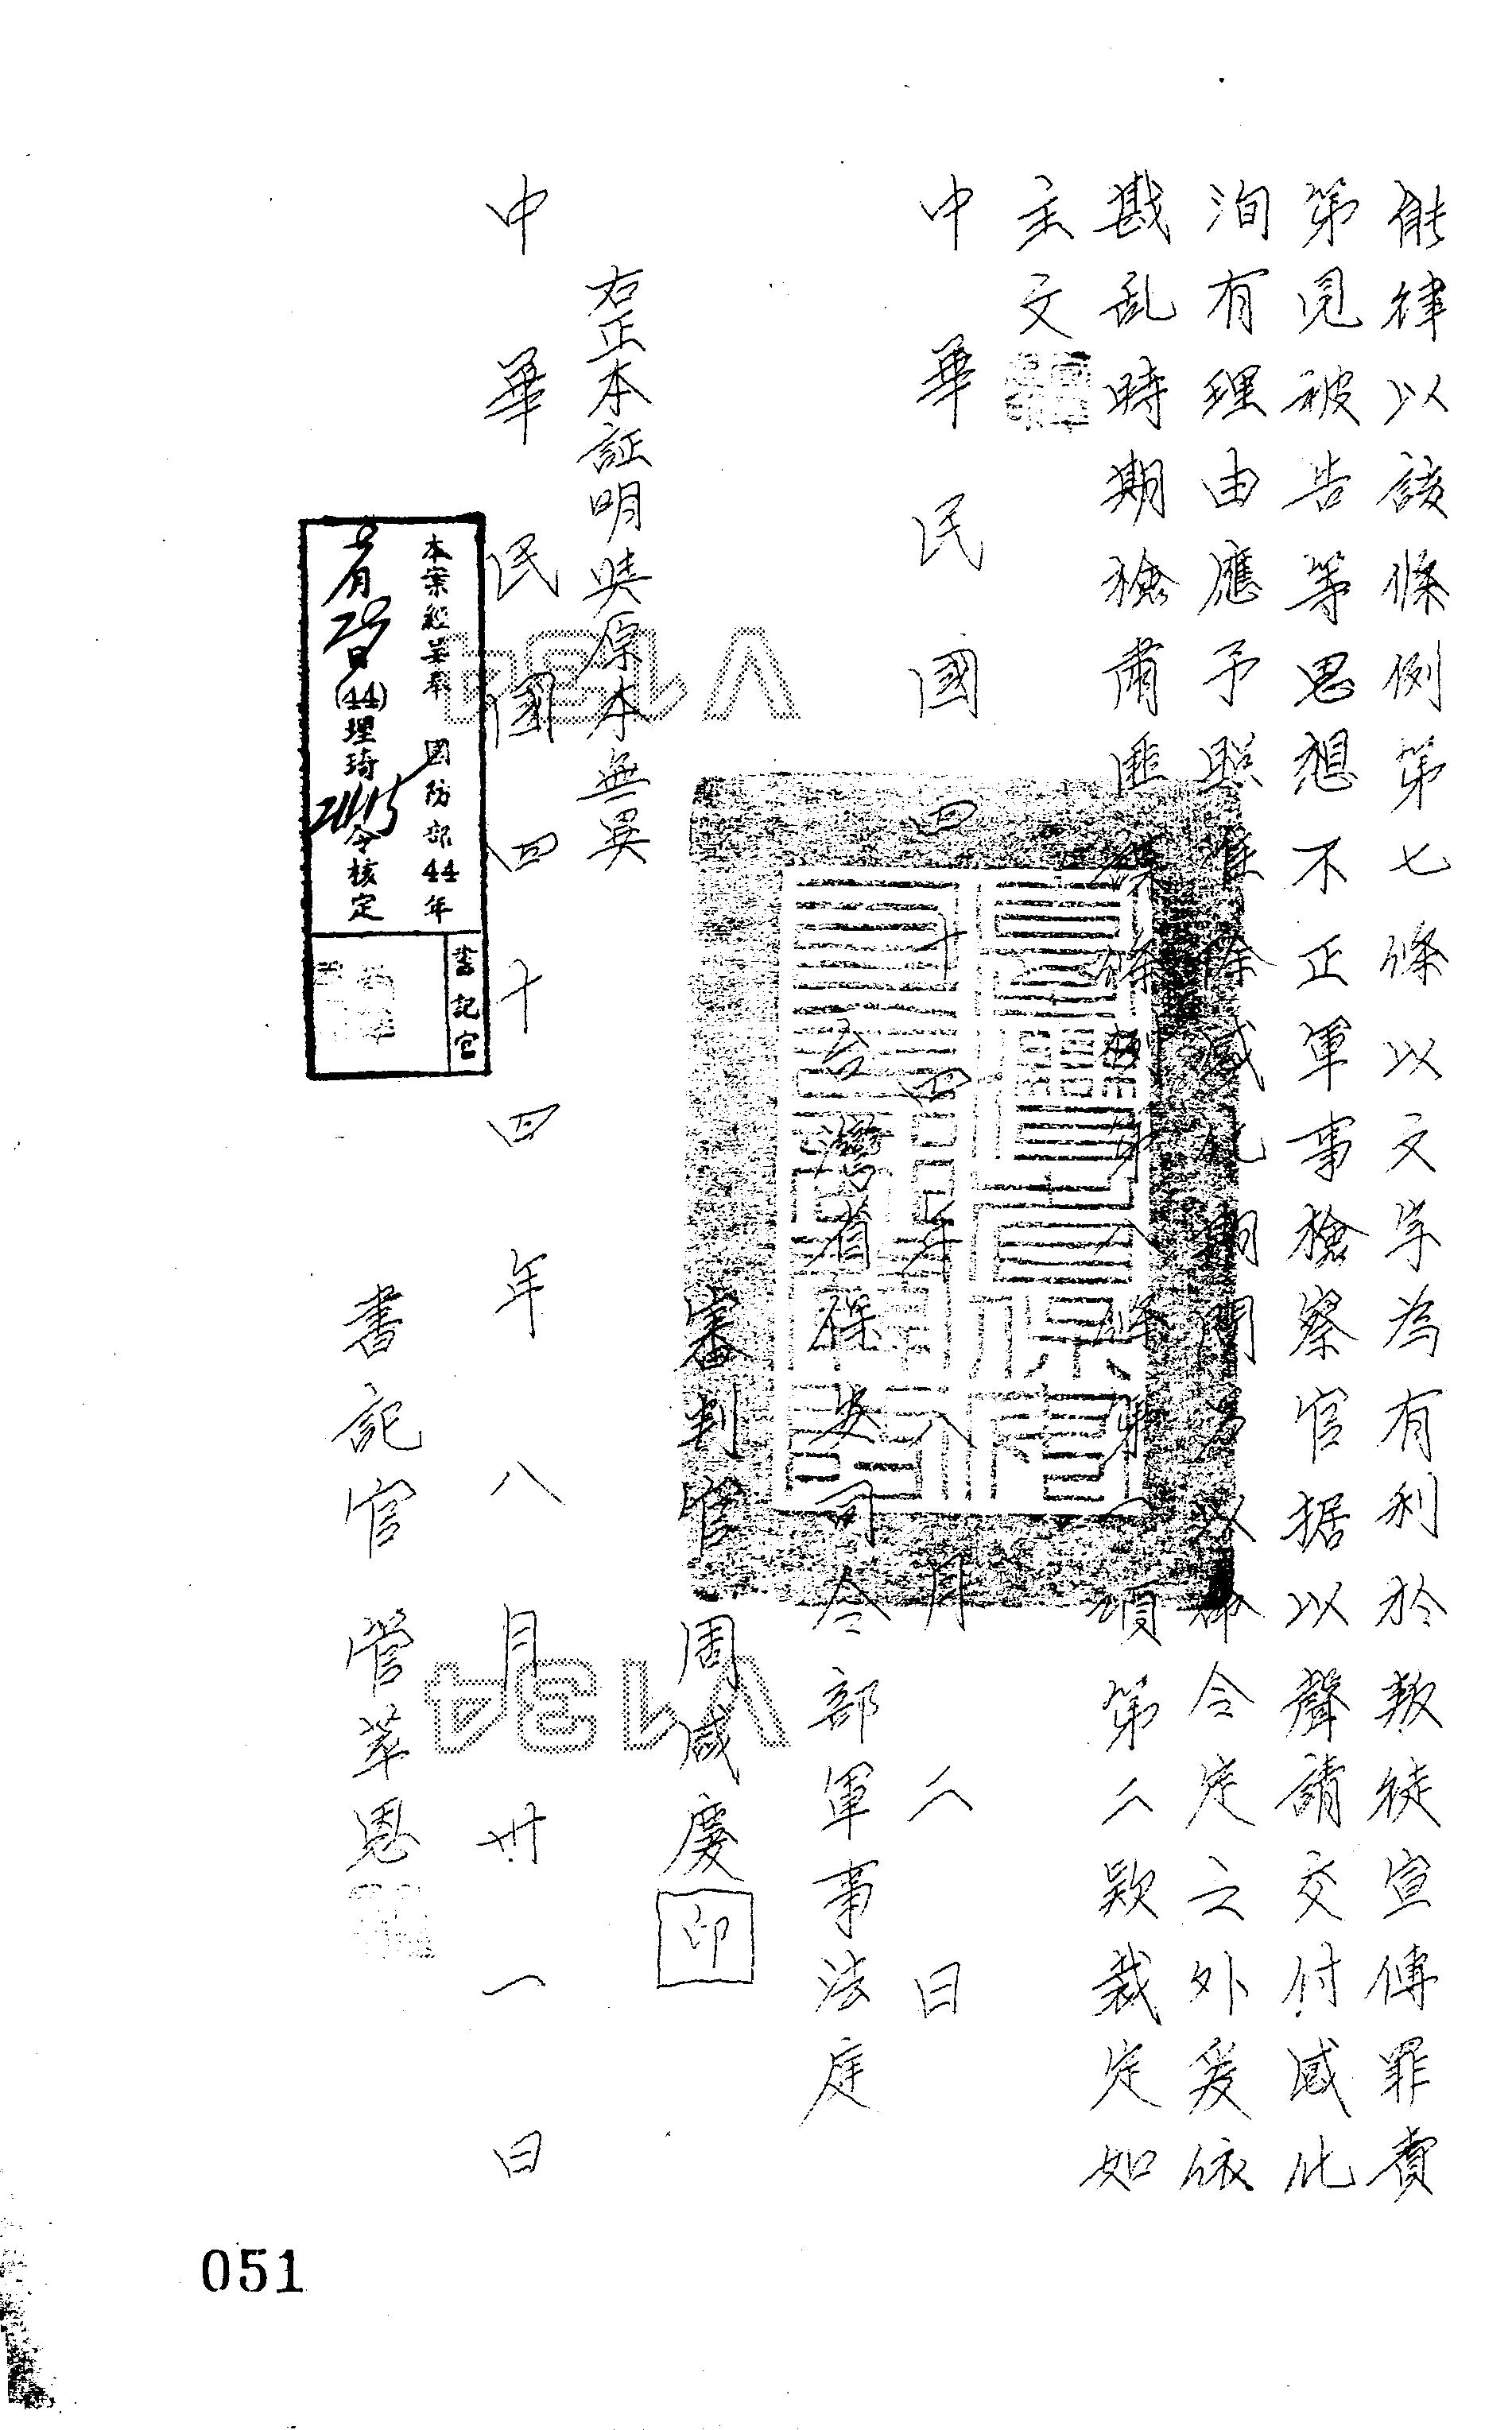 能律以該條例第七條以文字為有利於叛徒宣傳罪責
第見被告等思想不正軍事檢察官据以聲請交付感化
洵有理由應予照准除感化期間另以命令定之外爰依
戡乱時期檢肅匪諜條例第八條第一項第二款裁定如
主文
中華民國四十四年八月二日
台灣省保安司令部軍事法庭
審判官 周咸慶 印
右正本証明與原本無異
中華民國四十四年八月卅一日
本案經呈奉 國防部44年
月 日(44)理琦 令核定
書記官
書記官 管萃恩
V134
V134
051